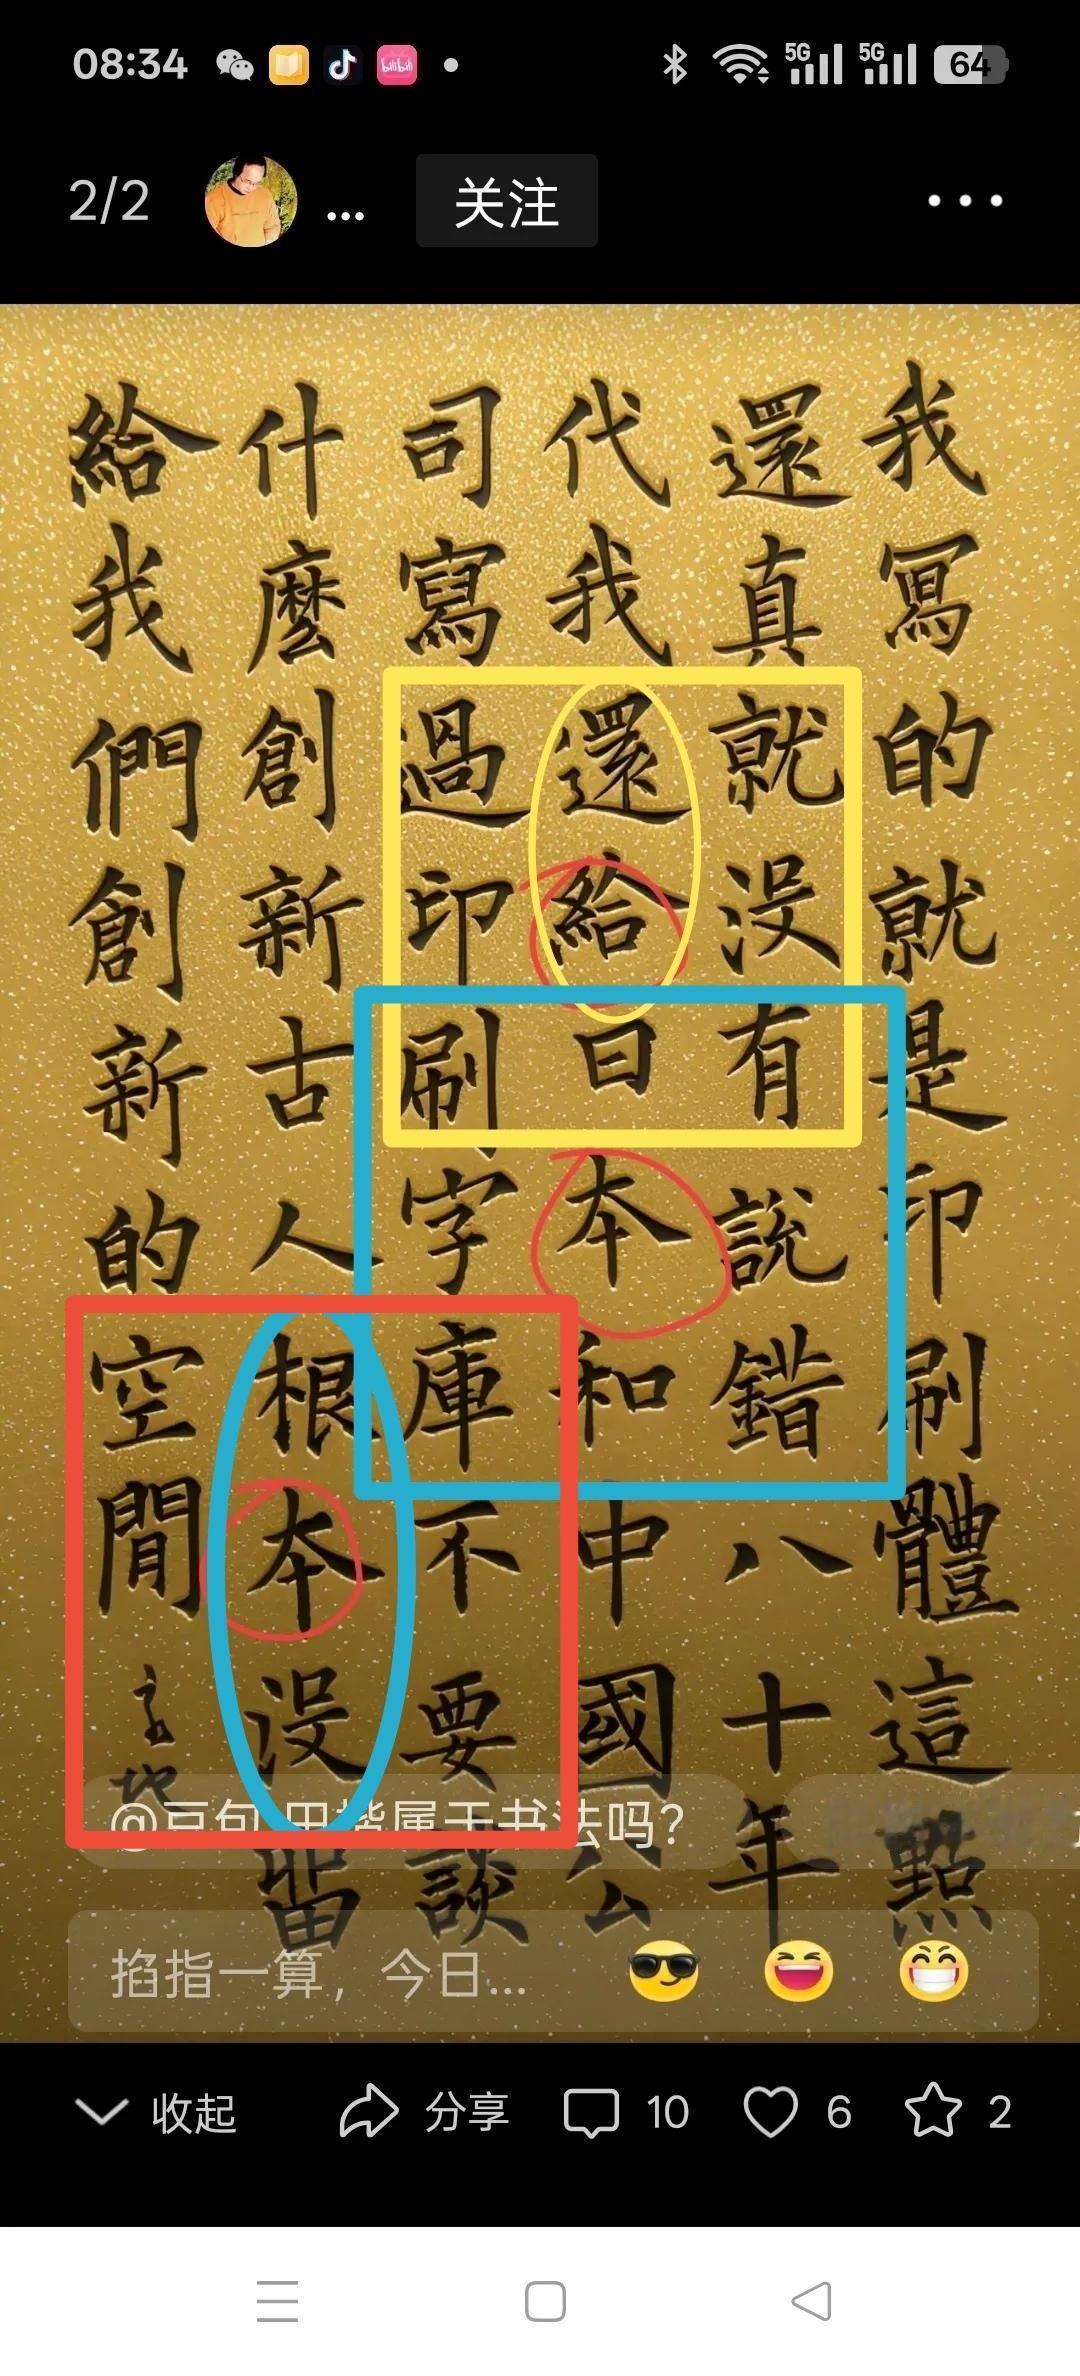 08:34
5G 5G 64
2/2 ... 关注
我寫的就是印刷體這點
還真就没有説錯八十年
代我還給日本和中國公
司寫過印刷字庫不要談
什麽創新古人根本没留
給我們創新的空間
@豆包 田楷属于书法吗?
掐指一算，今日...
收起 分享 10 6 2